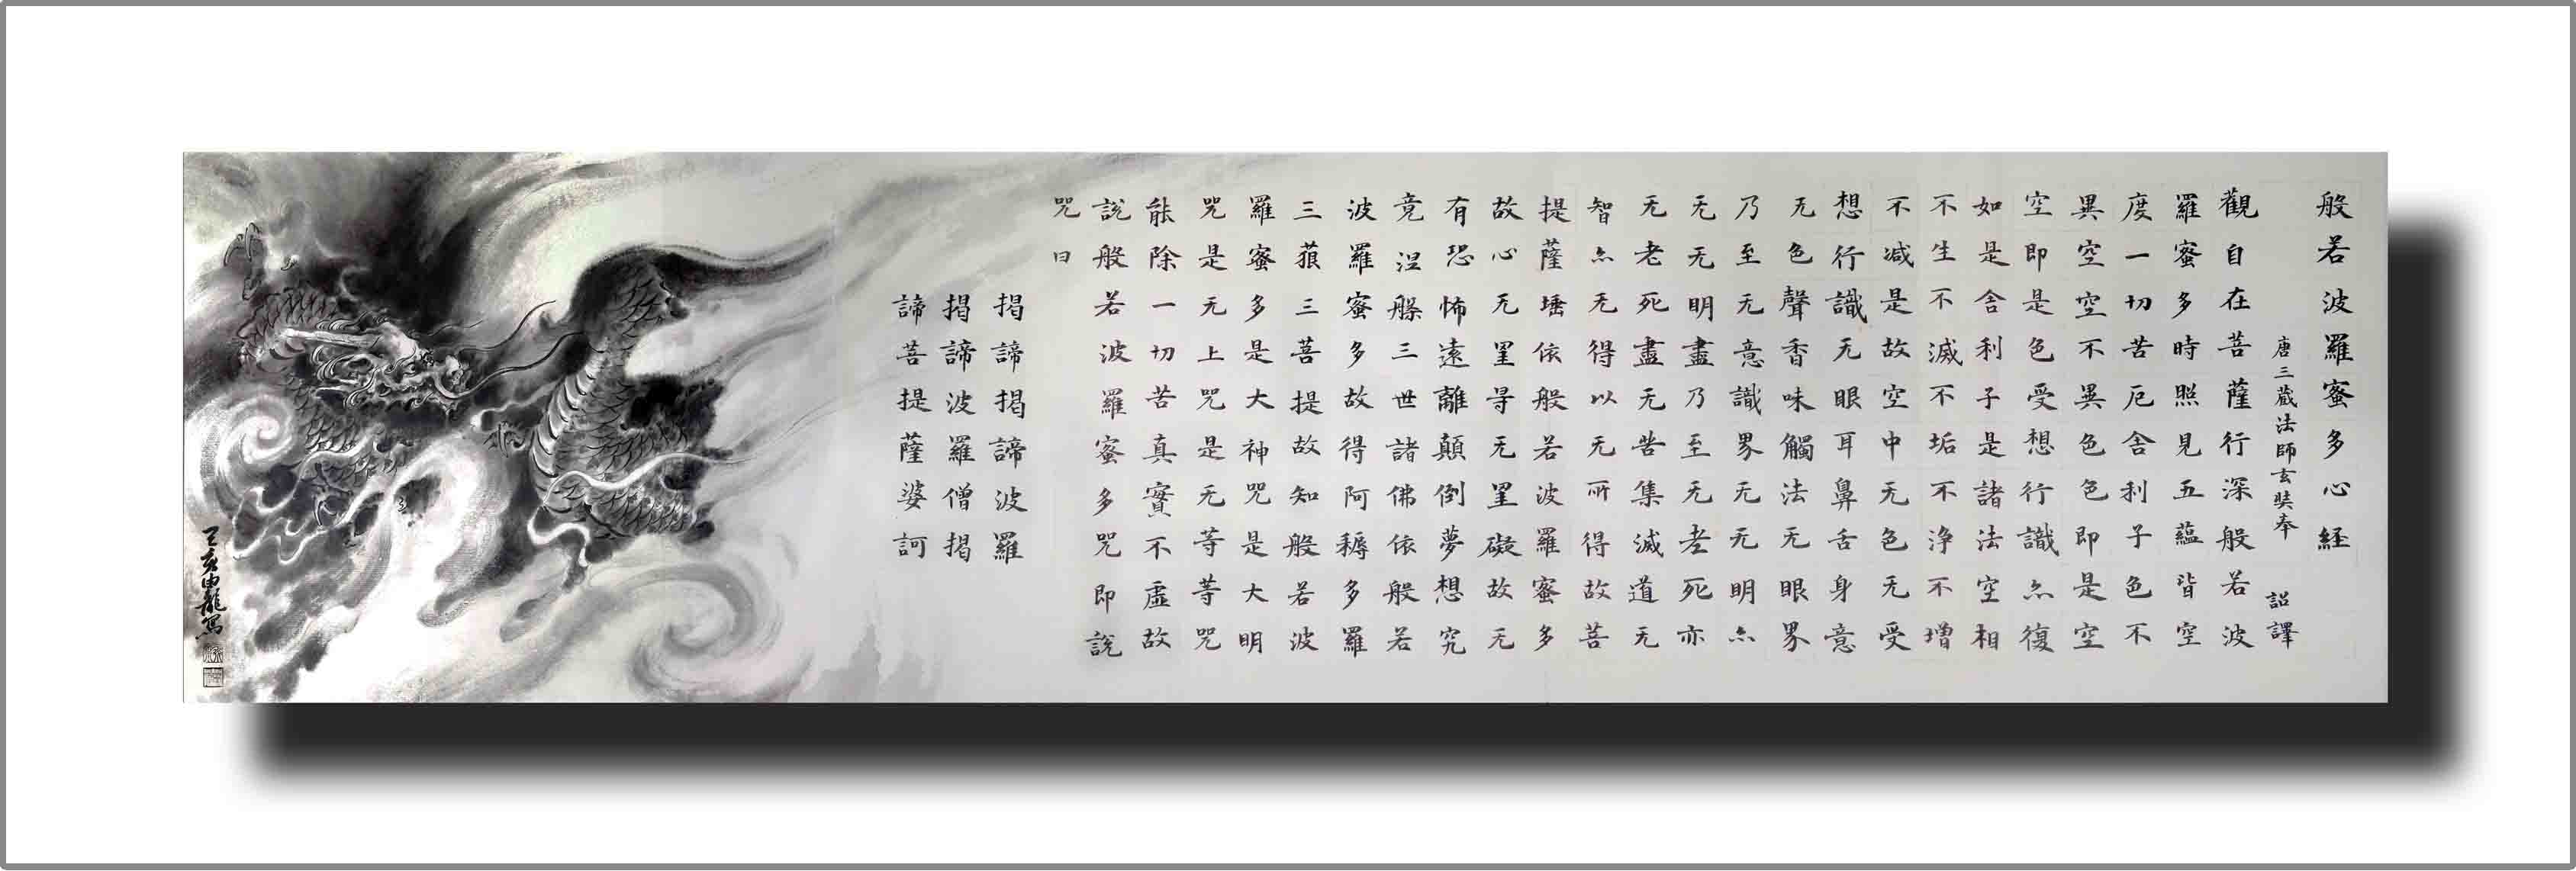 般若波羅蜜多心経
唐三蔵法師玄奘奉 詔譯
觀自在菩薩行深般若波
羅蜜多時照見五蘊皆空
度一切苦厄舍利子色不
異空空不異色色即是空
空即是色受想行識亦復
如是舍利子是諸法空相
不生不滅不垢不淨不增
不減是故空中无色无受
想行識无眼耳鼻舌身意
无色聲香味觸法无眼界
乃至无意識界无无明亦
无无明盡乃至无老死亦
无老死盡无苦集滅道无
智亦无得以无所得故菩
提薩埵依般若波羅蜜多
故心无罣㝵无罣礙故无
有恐怖遠離顛倒夢想究
竟涅槃三世諸佛依般若
波羅蜜多故得阿耨多羅
三藐三菩提故知般若波
羅蜜多是大神咒是大明
咒是无上咒是无等等咒
能除一切苦真實不虛故
說般若波羅蜜多咒即說
咒曰
揭諦揭諦波羅
揭諦波羅僧揭
諦菩提薩婆訶
己亥由龍寫